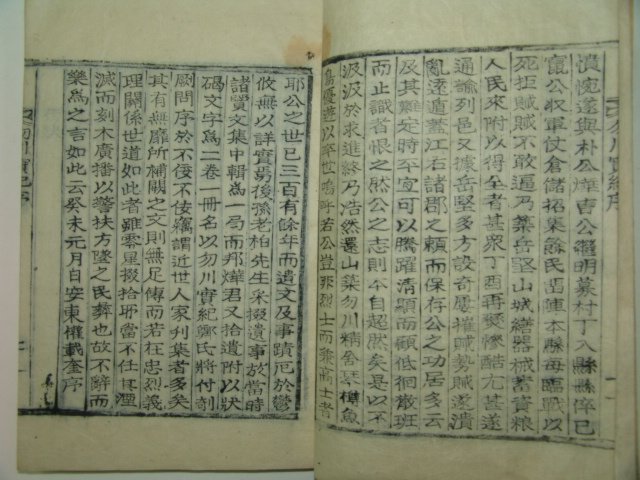 憤惋遂與朴公燁曺公繼明募村丁入縣縣倅已
竄公收軍仗倉儲招集餘民留陣本縣每臨戰以
死拒賊賊不敢逼乃築岳堅山城繕器械畜資粮
人民來附以得全者甚衆丁酉再燹慘酷尤甚遂
通諭列邑又城岳堅多方設奇屢摧勢賊遂潰
亂遠遁蓋江右諸郡之賴而保存公之功居多云
及其難定時平宜可以騰躍清顯而顧低徊散班
而止識者恨之然公之志則本自超然矣是以不
汲汲於求進終乃浩然還山築勿川精舍琴樽魚
鳥優遊以卒世嗚呼若公豈非烈士而兼高士者
勿川實紀序
耶公之世已三百有餘年而遺文及事蹟厄於鬱
攸無以詳實焉後孫老柏先生采掇遺事放當時
諸賢文集中輯爲一局而邦燁君又拾遺附以狀
碣文字爲二卷一冊名以勿川實紀鄭氏將付剞
劂問序於不佞不佞竊謂近世人家刋集者多矣
其有無靡所補闕之文則無足傳而若枉忠烈義
理關係世道如此者雖零星掇拾耶當不任其湮
滅而刻木廣播以警扶方墜之民彝也故不辭而
樂爲之言如此云癸未元月日安東權載奎序
勿川實紀序